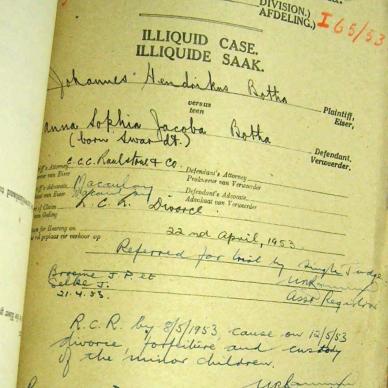 DIVISION.)
AFDELING.)
I 65/53
ILLIQUID CASE.
ILLIQUIDE SAAK.
Johannes Hendrikus Botha
Plaintiff,
Eiser,
versus
teen
anna Sophia Jacoba Botha
(born Swardt.)
Defendant.
Verweerder.
C.C.C. Raulstone & Co.
Defendant's Attorney
Prokureur van Verweerder
Macaulay
Defendant's Advocate.
Advokaat van Verweerder
R.C.R. Divorce
22nd April, 1953
Referred for trial by single Judge
Asst Registrar
Broome J.P. et
Selke J.
21.4.53.
R.C.R. by 8/5/1953, cause on 12/5/53
divorce forfeiture and custody
of the minor children.